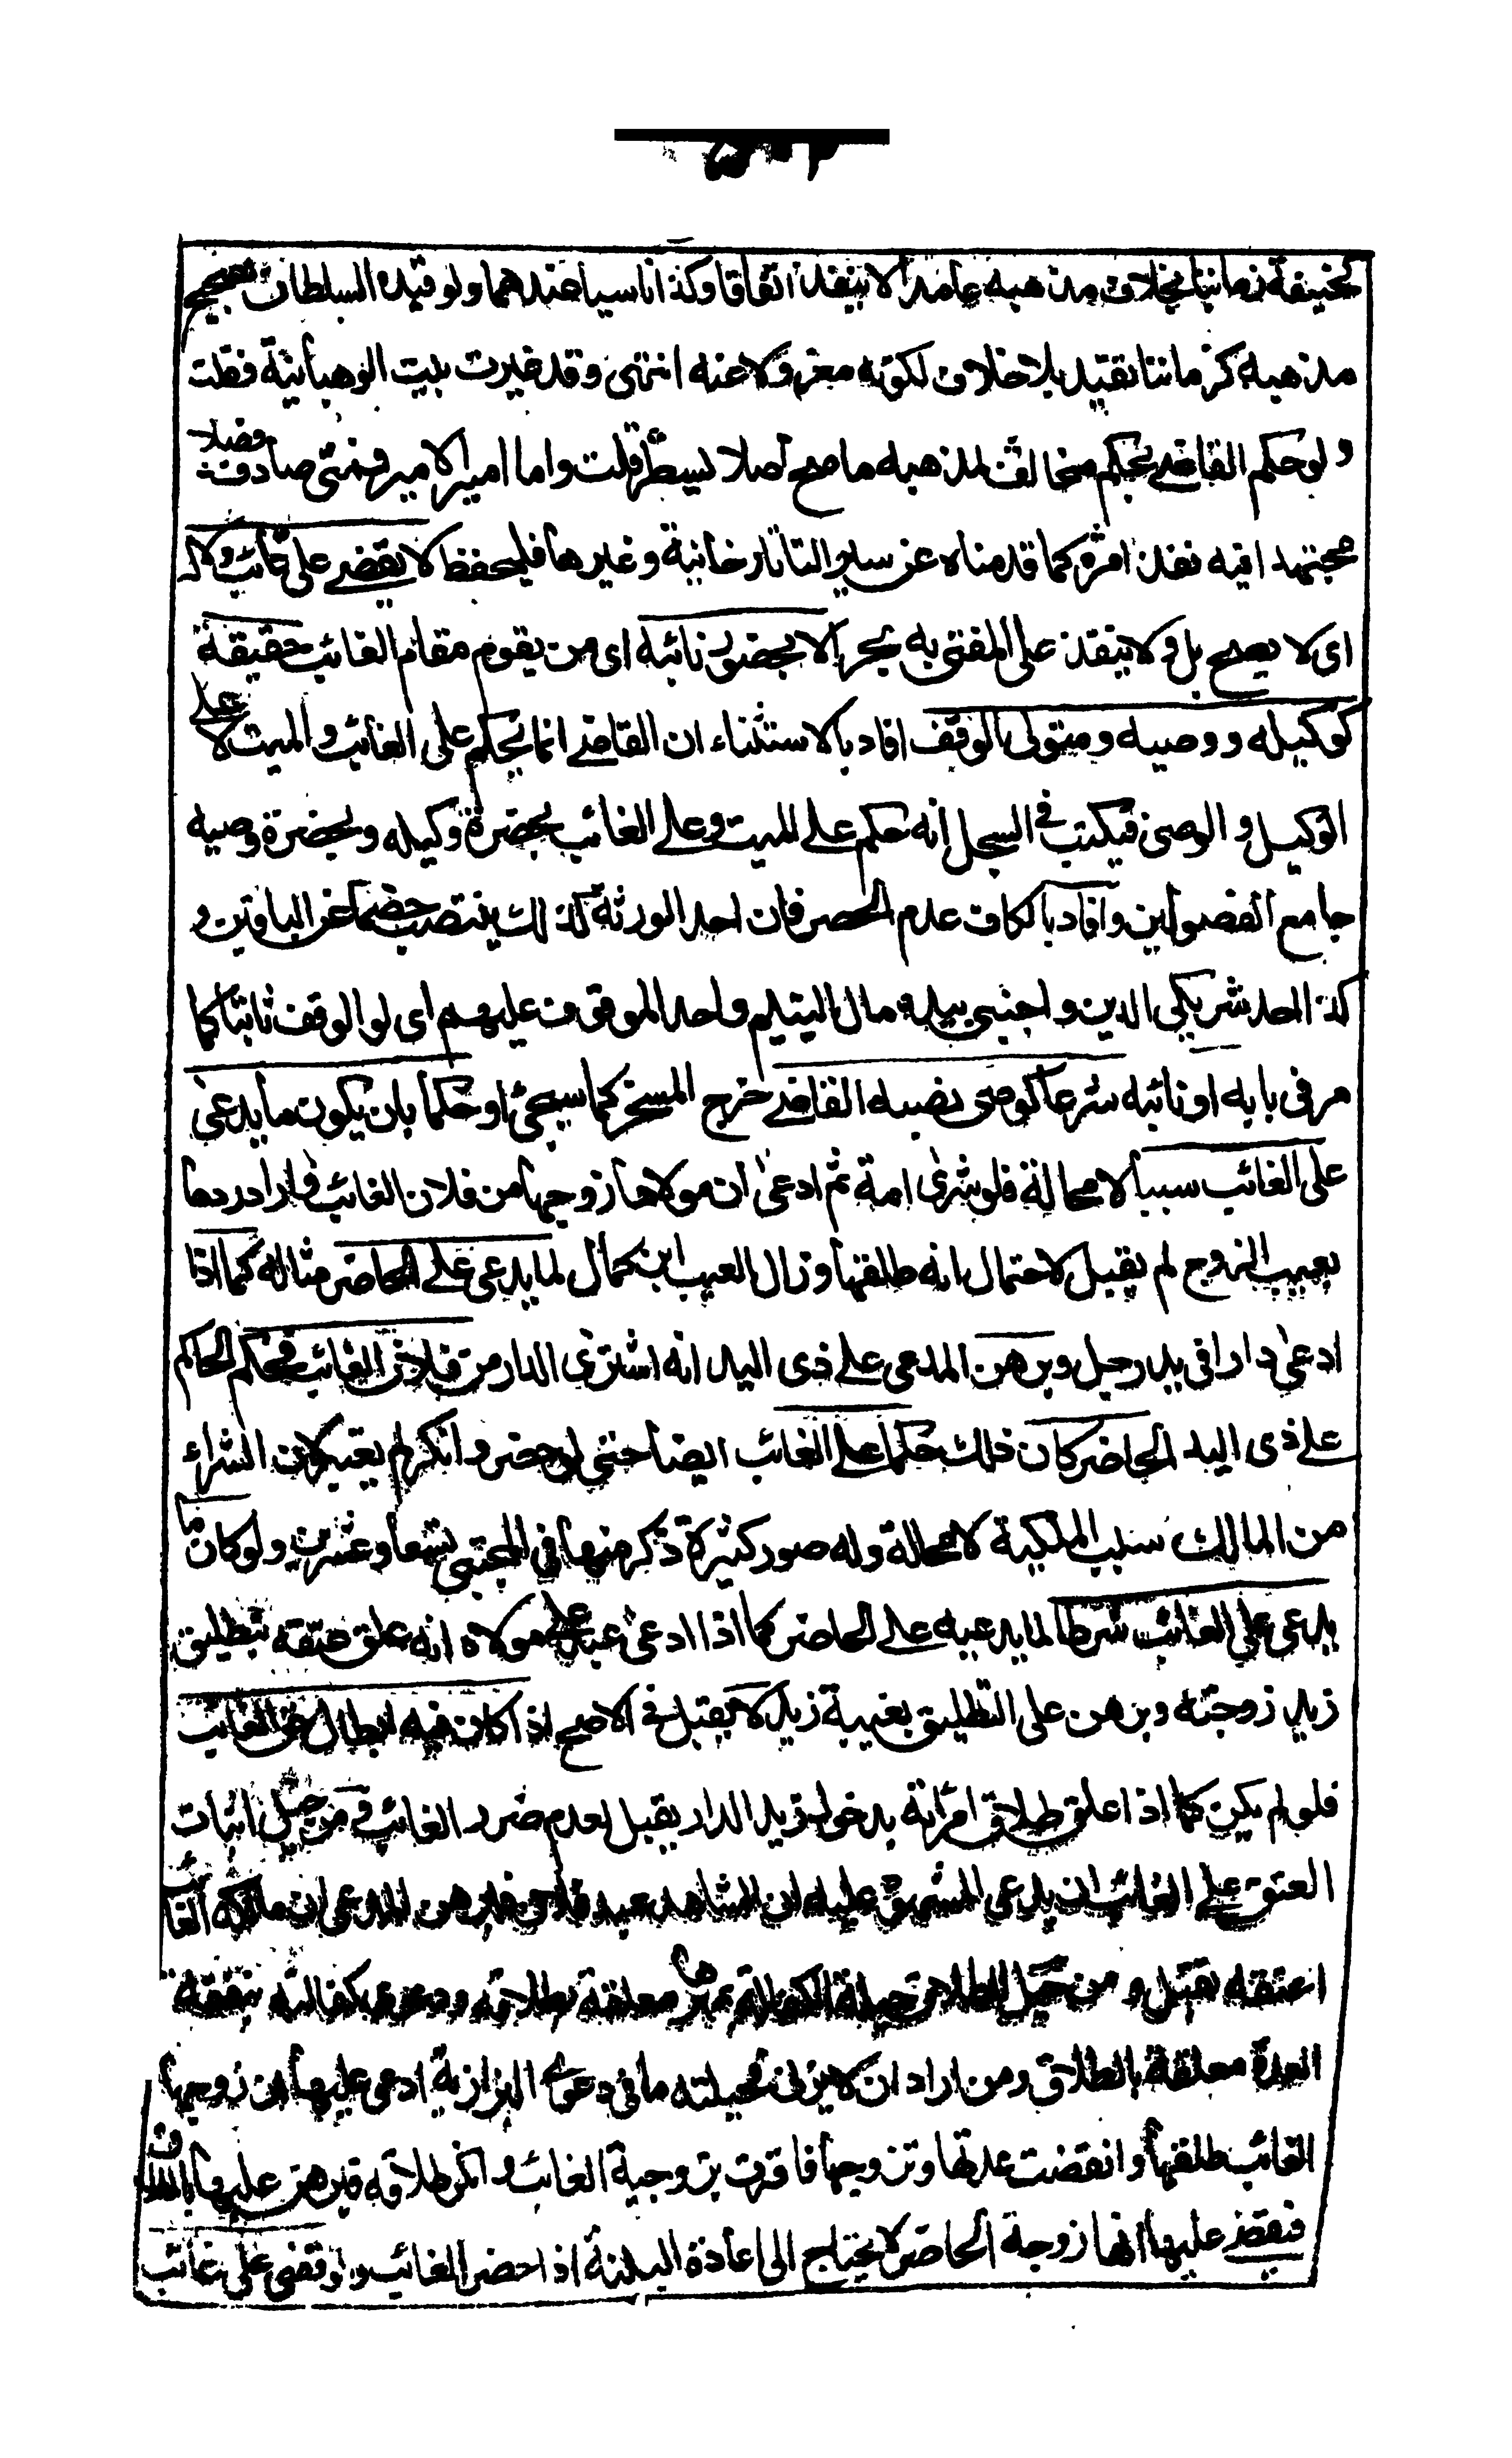 كحنيفة زماننا بخلاف مذهبه عامدا لا ينفذ اتفاقا وكذا ناسيا عندهما ولو قيده السلطان بصحيح
مذهبه كزماننا تقيد بلا خلاف لكونه معزولا عنه انتهى وقد غيرت بيت الوهبانية فقلت
ولو حكم القاضي بحكم مخالف لمذهبه ما صح اصلا يسطر قلت واما امير الامير فمتى صادف فصلا
مجتهدا فيه نفذ امره كما قدمناه عن سير التاتارخانية وغيرها فليحفظ لا يقضي على غائب ولا له
اى لا يصح بل ولا ينفذ على المفتى به بحر الا بحضور نائبه اى من يقوم مقام الغائب حقيقة
كوكيله ووصيه ومتولى الوقف افاد بالاستثناء ان القاضي انما يحكم على الغائب والميت لا على
الوكيل والوصى فيكتب في السجل انه حكم على الميت وعلى الغائب بحضرة وكيله وبحضرة وصيه
جامع الفصولين وافاد بالكاف عدم الحصر فان احد الورثة كذلك ينتصب خصما عن الباقين و
كذا احد شريكى الدين واجنبى بيده مال اليتيم واحد الموقوف عليهم اى لو الوقف ثابتا كما
مر فى بابه او نائبه شرعا كوصى نصبه القاضي خرج المسخر كما سيجئ او حكما بان يكون ما يدعى
على الغائب سببا لا محالة فلو شرى امة ثم ادعى ان مولاها زوجها من فلان الغائب واراد ردها
بعيب الزوج لم يقبل لاحتمال انه طلقها وزال العيب ابن كمال لما يدعى على الحاضر مثاله كما اذا
ادعى دارا فى يد رجل وبرهن المدعى على ذى اليد انه اشترى الدار من فلان الغائب فحكم الحاكم
على ذى اليد الحاضر كان ذلك حكما على الغائب ايضا حتى لو حضر وانكر لم يعتبر لان الشراء
من المالك سبب الملكية لا محالة وله صور كثيرة ذكر منها فى المجتبى تسعا وعشرين ولو كان ما
يدعى على الغائب شرطا لما يدعيه على الحاضر كما اذا ادعى عبد على مولاه انه علق عتقه بتطليق
زيد زوجته وبرهن على التطليق بغيبة زيد لا يقبل في الاصح اذا كان فيه ابطال حق الغائب
فلو لم يكن كما اذا علق طلاق امراته بدخول زيد الدار يقبل لعدم ضرر الغائب ومن حيل اثبات
العتق على الغائب ان يدعى المشهود عليه ان الشاهد عبد فلان فبرهن المدعى ان مالكه الغائب
اعتقه تقبل ومن حيل الطلاق حيلة الكفالة بمهرها معلقة بطلاقه ودعوى كفالته بنفقة
العدة معلقة بالطلاق ومن اراد ان لا يزنى فحيلته ما فى دعوى البزازية ادعى عليها ان زوجها
الغائب طلقها وانقضت عدتها وتزوجها فاقرت بزوجية الغائب وانكرت طلاقه فبرهن عليها بالطلاق
فيقضي عليها انها زوجة الحاضر لا يحتاج الى اعادة البينة اذا حضر الغائب ولو قضى على غائب